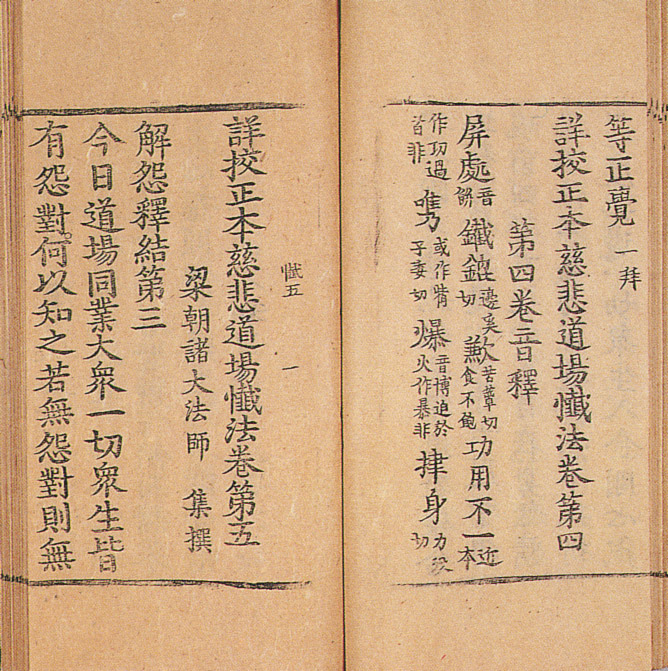 等正覺 一拜
詳挍正本慈悲道場懺法卷第四
第四卷音釋
屏處 音餅 鐵 切 歉 苦蕈切食不飽 功用不一 近本
作功過首非 嶲 或作觜子委切 爆 音博迫於火作暴非 㨷身 力沒切
懺五 一
詳挍正本慈悲道場懺法卷第五
梁朝諸大法師 集撰
解怨釋結第三
今日道場同業大衆一切衆生皆
有怨對何以知之若無怨對則無